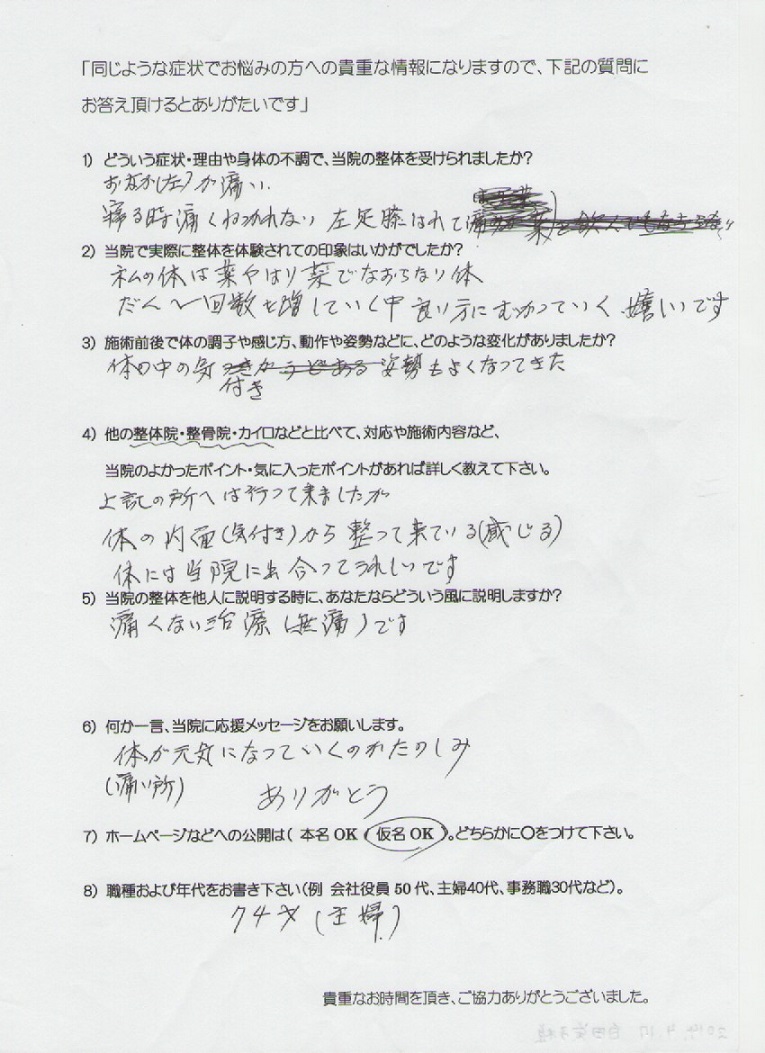 「同じような症状でお悩みの方への貴重な情報になりますので、下記の質問に
お答え頂けるとありがたいです」
1) どういう症状・理由や身体の不調で、当院の整体を受けられましたか?
おなか(左)が痛い
寝る時痛くねつかれない 左足膝はれて
2) 当院で実際に整体を体験されての印象はいかがでしたか?
私の体は薬やはり薬でなおらない体
だん〱回数を増していく中 良い方にむかっていく 嬉しいです
3) 施術前後で体の調子や感じ方、動作や姿勢などに、どのような変化がありましたか?
体の中の気 姿勢もよくなってきた
付き
4) 他の整体院・整骨院・カイロなどと比べて、対応や施術内容など、
当院のよかったポイント・気に入ったポイントがあれば詳しく教えて下さい。
上記の所へは行って来ましたが
体の内面(気付き)から整って来ている(感じる)
体には当院に出合ってうれしいです
5) 当院の整体を他人に説明する時に、あなたならどういう風に説明しますか?
痛くない治療(無痛)です
6) 何か一言、当院に応援メッセージをお願いします。
体が元気になっていくのがたのしみ
(痛い所)
ありがとう
7) ホームページなどへの公開は( 本名 OK ( 仮名 OK )。どちらかに〇をつけて下さい。
8) 職種および年代をお書き下さい(例 会社役員 50 代、主婦40代、事務職30代など)。
74才(主婦)
貴重なお時間を頂き、ご協力ありがとうございました。